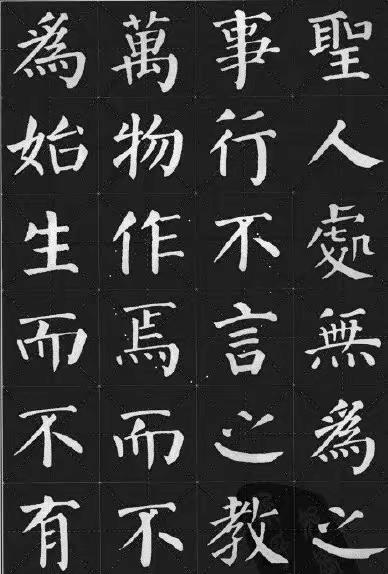 聖人處無為之
事行不言之教
萬物作焉而不
為始生而不有